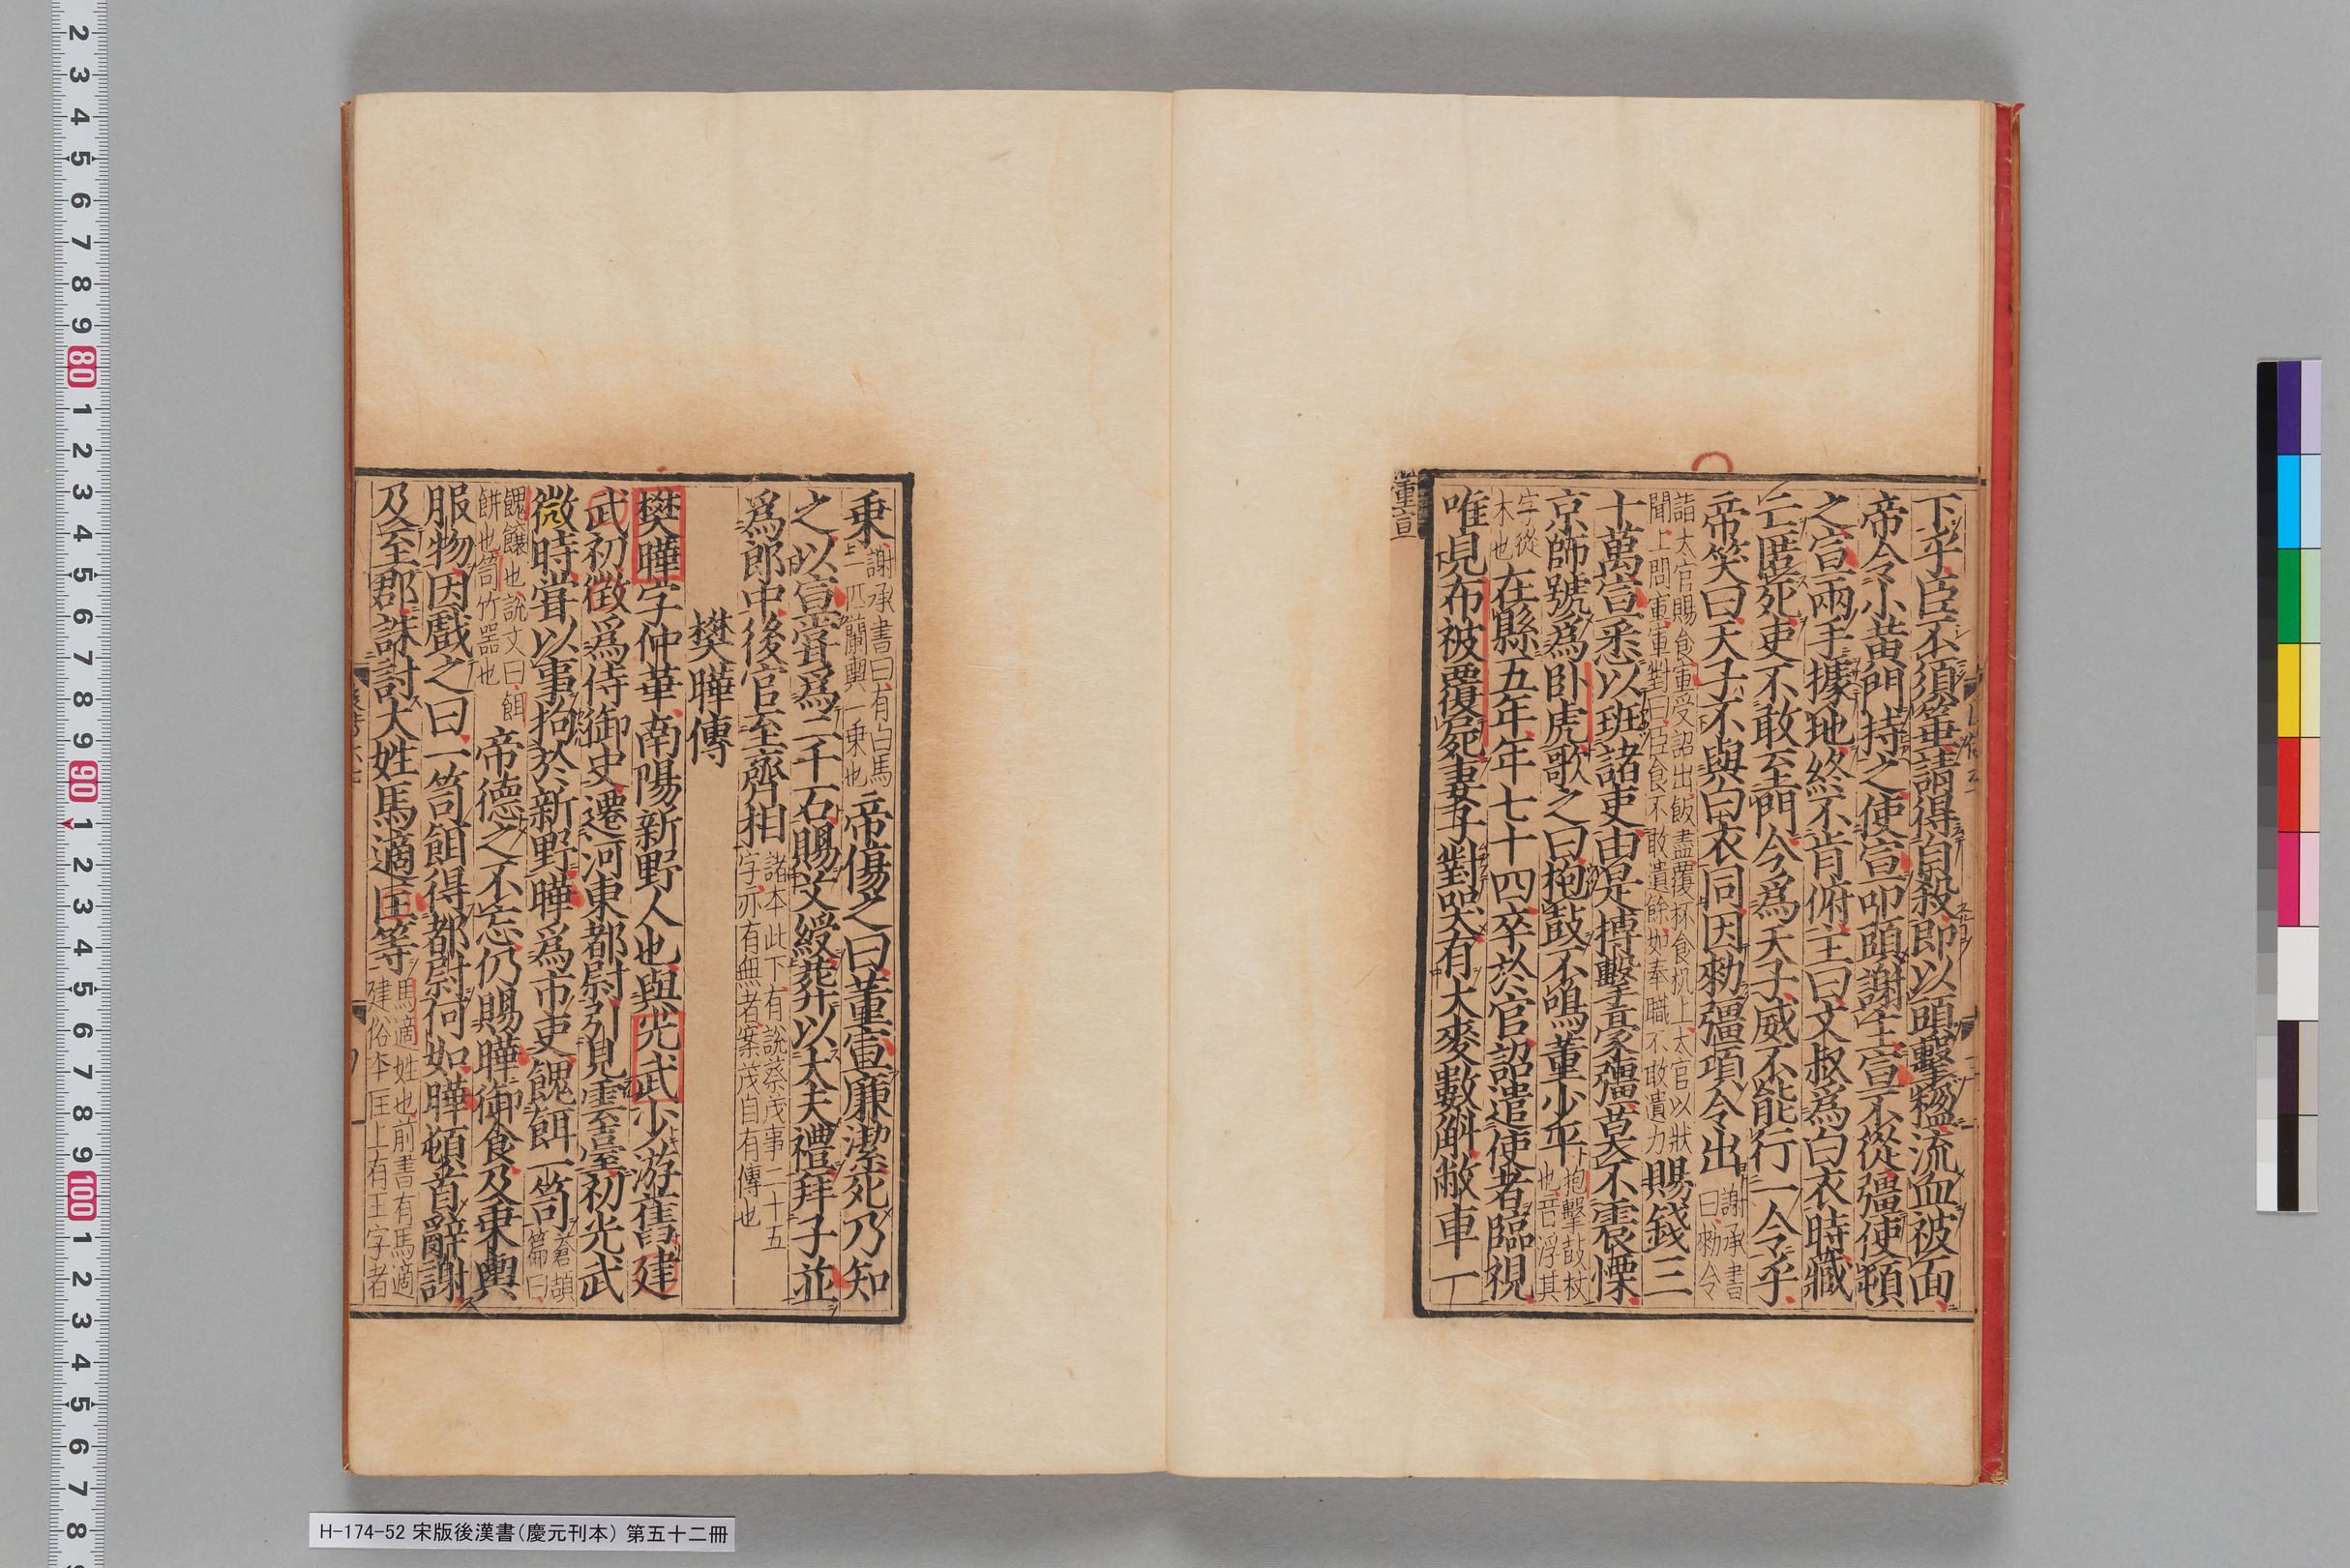 下乎臣不須箠請得自殺即以頭擊楹流血被面
帝令小黃門持之使宣叩頭謝主宣不從彊使頓
之宣兩手據地終不肯俯主曰文叔爲白衣時臧
亡匿死吏不敢至門今爲天子威不能行一令乎
帝笑曰天子不與白衣同因勑彊項令出謝承書曰勑令
詣太官賜食宣受詔出飯盡覆杯食机上太官以狀
聞上問宣宣對曰臣食不敢遺餘如奉職不敢遺力賜錢三
十萬宣悉以班諸吏由是搏擊豪彊莫不震慄
京師號爲卧虎歌之曰枹鼓不鳴董少平抱擊鼓杖也音浮其
字從木也在縣五年年七十四卒於官詔遣使者臨視
唯見布被覆屍妻子對哭有大麥數斛敝車一
董宣
乗謝承書曰有白馬一匹蘭輿一乗也帝傷之曰董宣廉潔死乃知
之以宣甞爲二千石賜艾綬葬以大夫禮拜子並
爲郎中後官至齊相諸本此下有說蔡茂事二十五字亦有無者案茂自有傳也
樊曄傳
樊曄字仲華南陽新野人也與光武少游舊建
武初徵爲侍御史遷河東都尉引見雲臺初光武
微時甞以事拘於新野曄爲市吏餽餌一笥蒼頡篇曰
餽饟也說文曰餌餅也笥竹器也帝德之不忘仍賜曄御食及乗輿
服物因戲之曰一笥餌得都尉何如曄頓首辭謝
及至郡誅討大姓馬適匡等馬適姓也前書有馬適建俗本匡上有王字者
H-174-52 宋版後漢書(慶元刊本) 第五十二冊